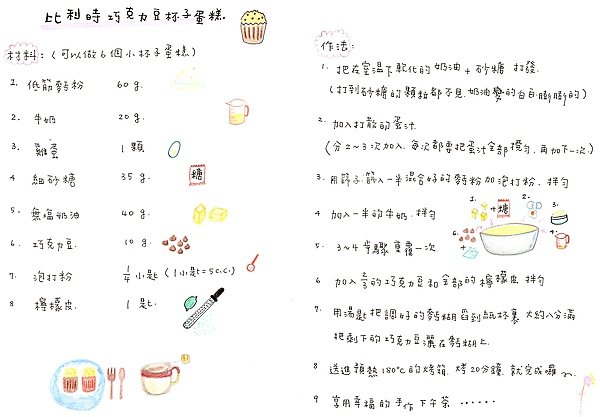 比利時巧克力豆杯子蛋糕.
材料:(可以做6個小杯子蛋糕)
1. 低筋麵粉 60g.
2. 牛奶 20g.
3. 雞蛋 1顆
4. 細砂糖 35g.
糖
5. 無塩奶油 40g.
6. 巧克力豆. 10g.
7. 泡打粉 1/4小匙(1小匙=5c.c.)
8 檸檬皮. 1匙.
作法:
1. 把在室溫下軟化的奶油+砂糖 打發.
(打到砂糖的顆粒都不見.奶油變的白白膨膨的)
2. 加入打散的蛋汁.
(分2~3次加入.每次都要把蛋汁全部攪勻.再加下一次.)
3. 用篩子.篩入一半混合好的麵粉加泡打粉.拌勻
4 加入一半的牛奶.拌勻
5. 3~4步驟重覆一次
1. +糖 2. 3. 4. 6.
6 加入2/3的巧克力豆和全部的檸檬皮.拌勻
7. 用湯匙把調好的麵糊舀到紙杯裏 大約八分滿
把剩下的巧克力豆灑在麵糊上.
8 送進預熱180°c的烤箱.烤20分鐘.就完成囉~
9 享用幸福的手作下午茶 ……